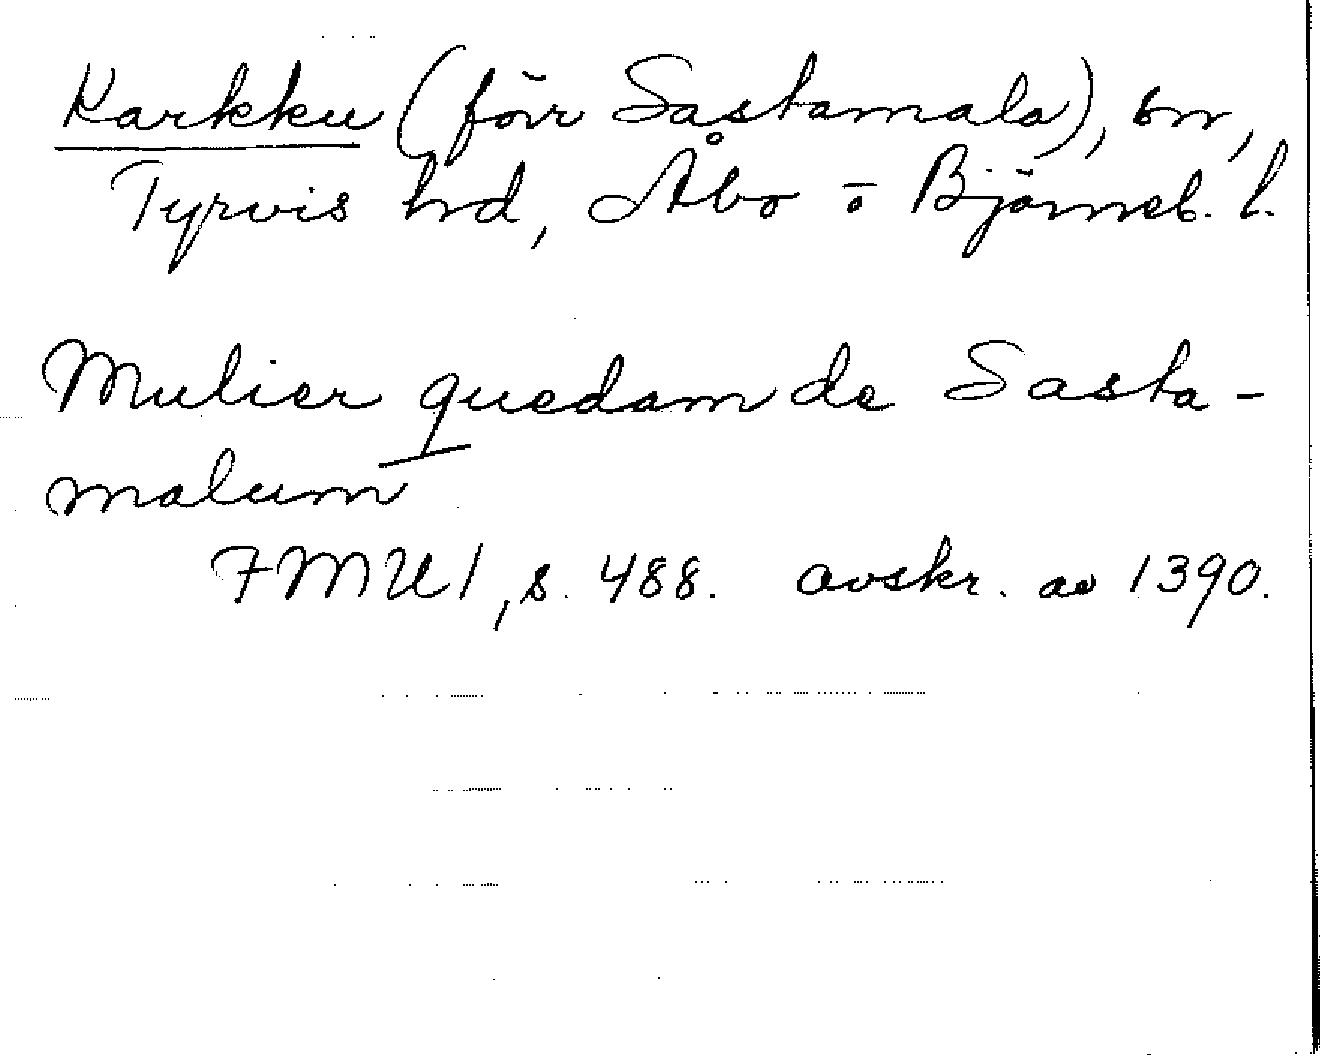 Karkku (förr Sastamala), sn,
Tyrvis hd, Åbo o Björneb. l.
Mulier quedam de Sasta-
malum
FMU 1, s. 488. avskr. av 1390.